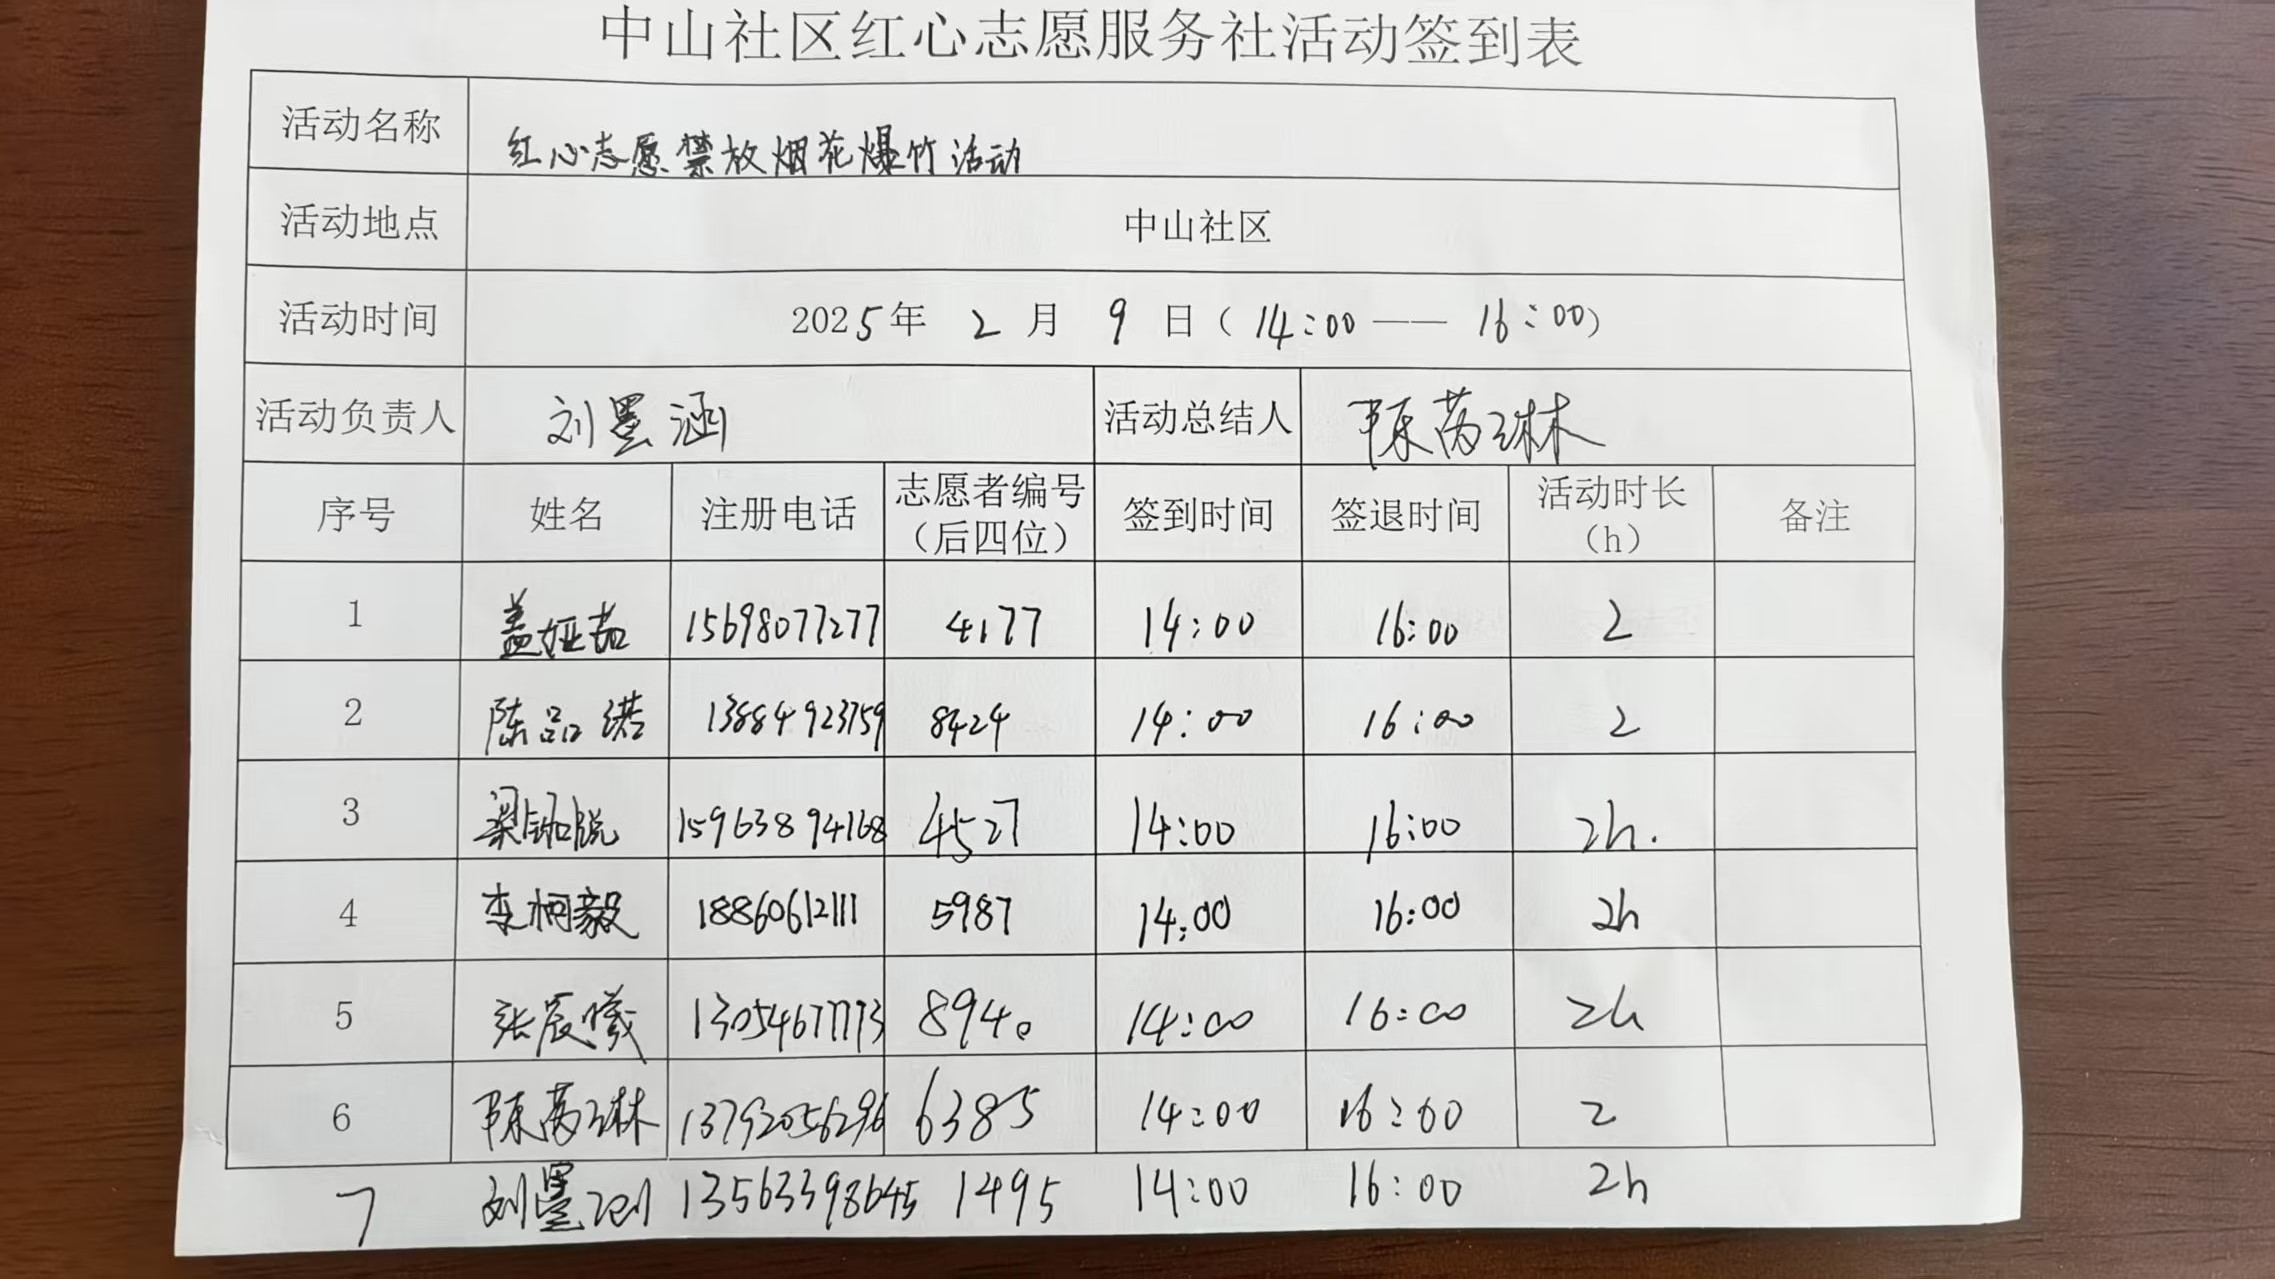 中山社区红心志愿服务社活动签到表
活动名称 红心志愿禁放烟花爆竹活动
活动地点 中山社区
活动时间 2025年 2 月 9 日（14:00 —— 16:00）
活动负责人 刘墨涵 活动总结人 陈芮琳
序号 姓名 注册电话 志愿者编号（后四位） 签到时间 签退时间 活动时长（h） 备注
1 盖娅茹 15698077277 4177 14:00 16:00 2
2 陈品诺 13884923759 8424 14:00 16:00 2
3 梁 15963894168 4527 14:00 16:00 2h.
4 李柯毅 18860612111 5987 14:00 16:00 2h
5 张宸曦 13054677773 8940 14:00 16:00 2h
6 陈芮琳 13792056296 6385 14:00 16:00 2
7 刘墨涵 13563398645 1495 14:00 16:00 2h